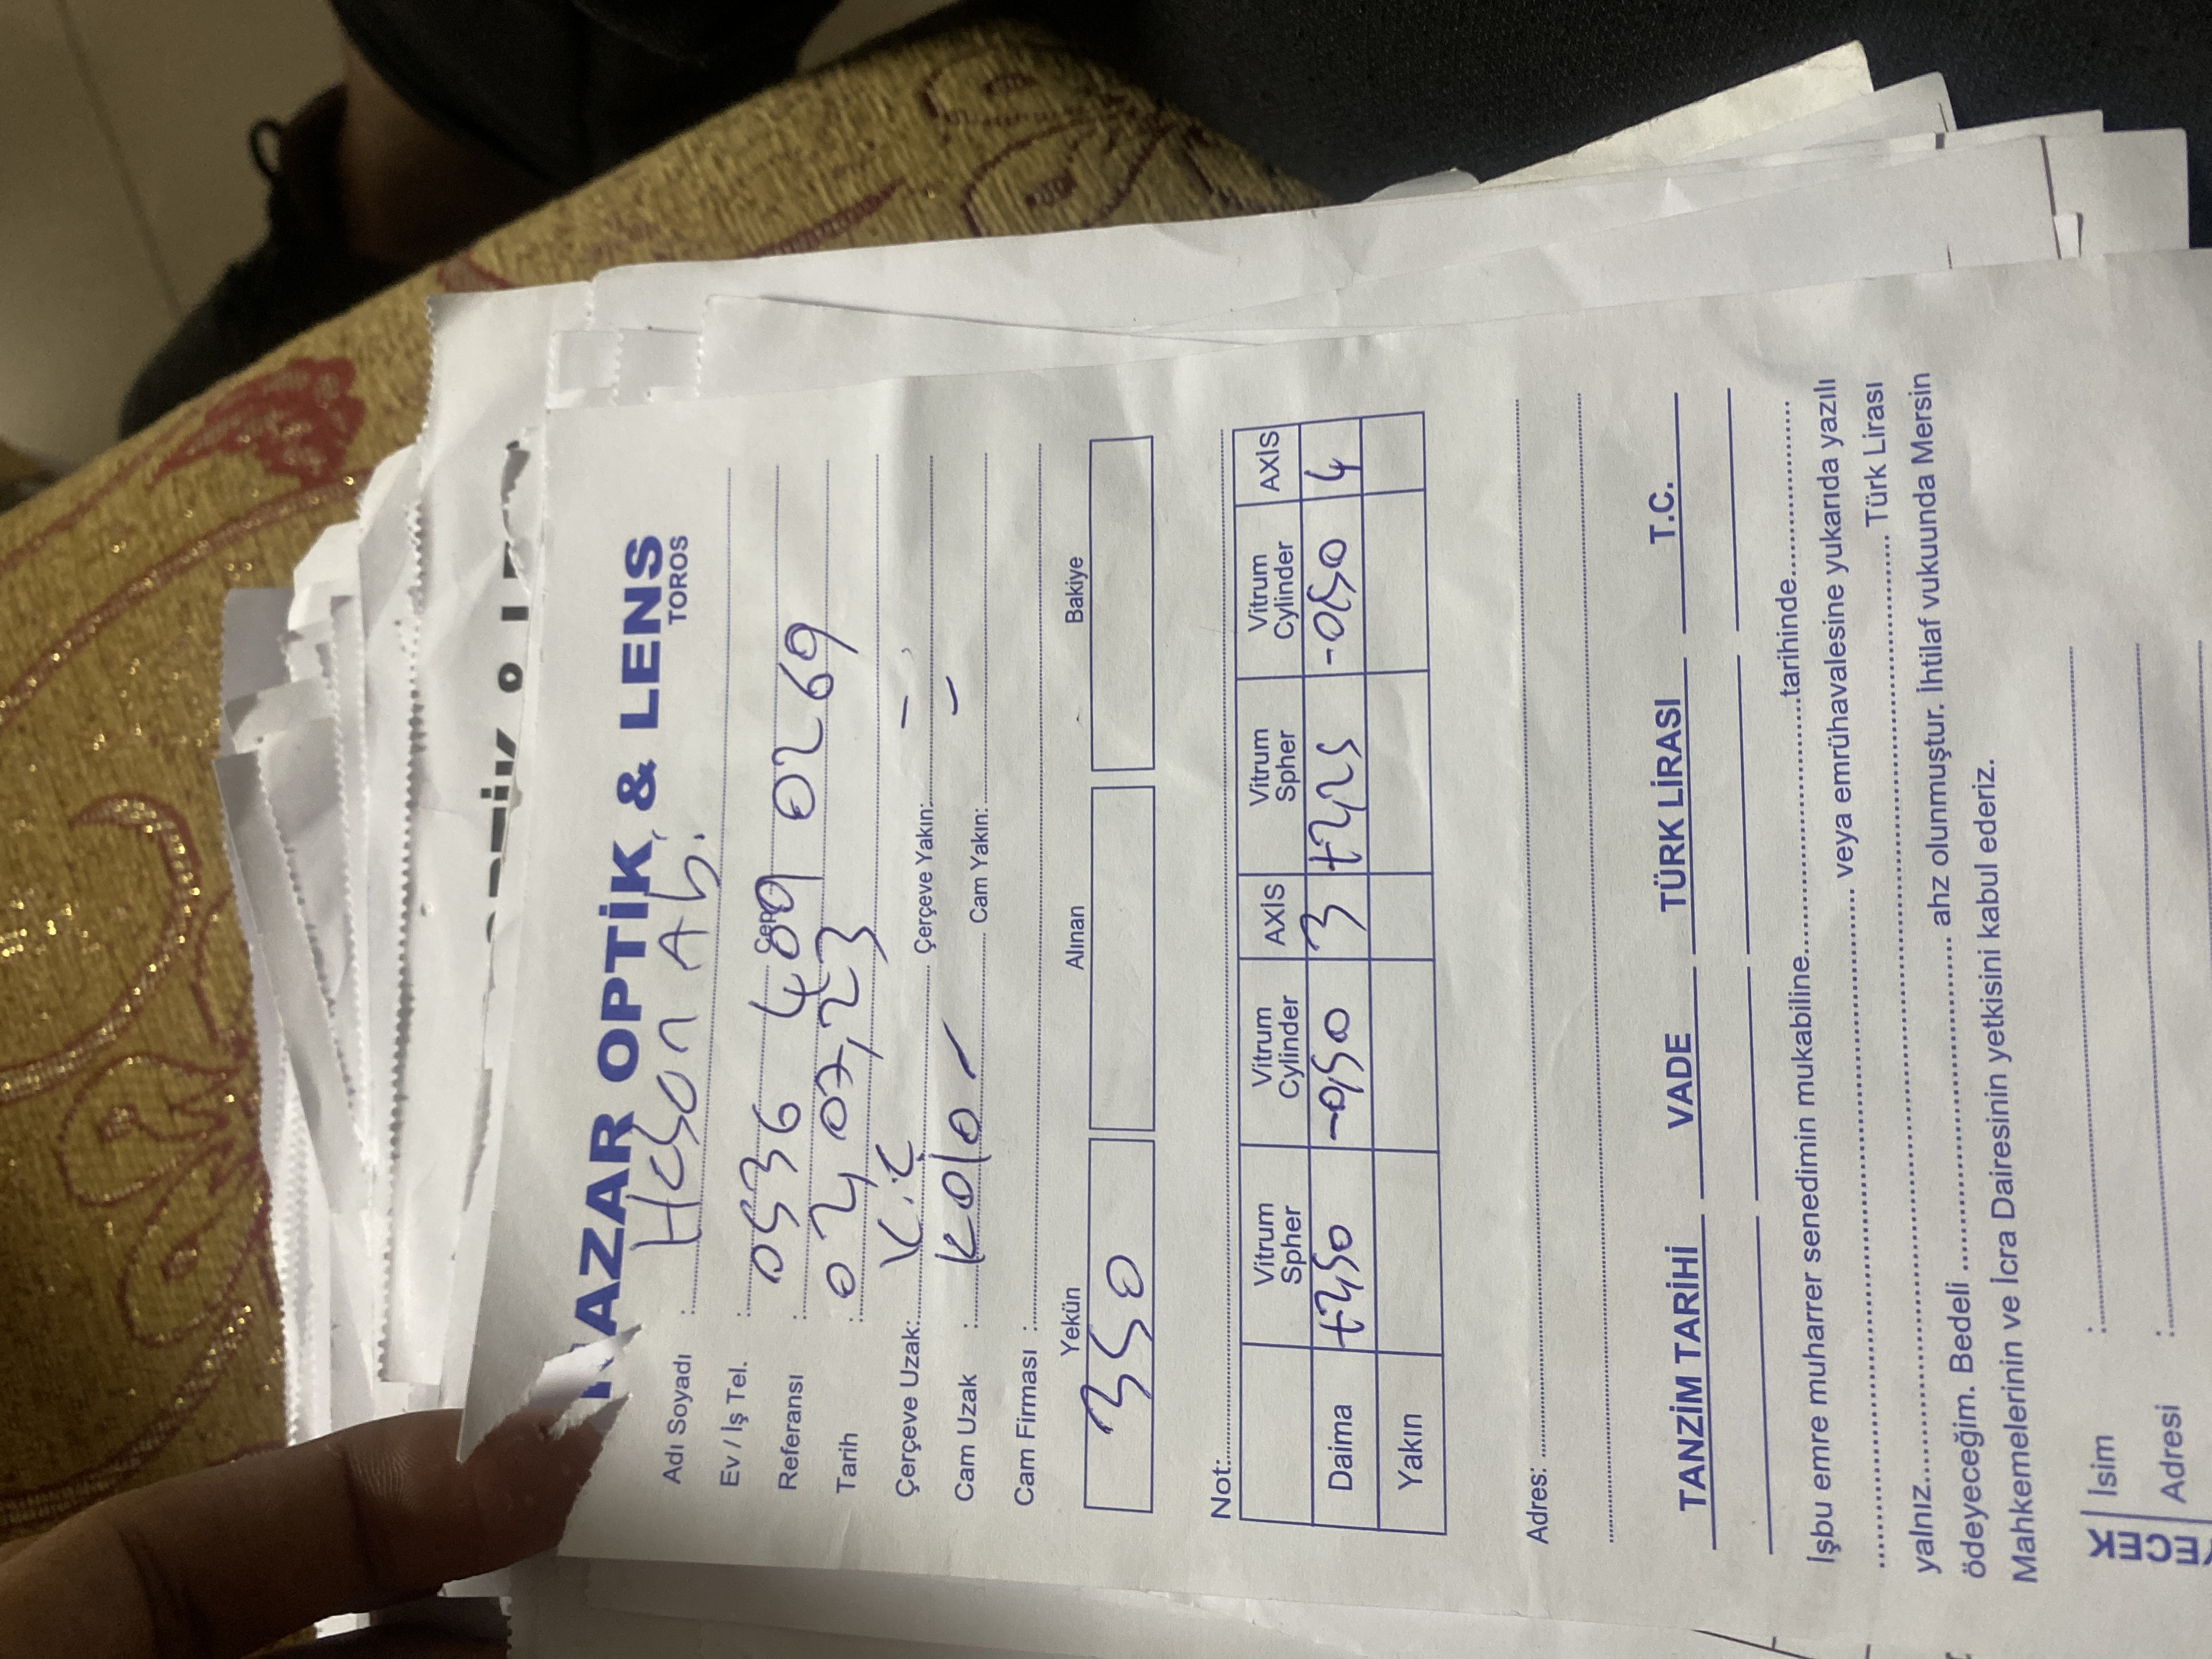 NAZAR OPTİK & LENS
TOROS
Adı Soyadı : Hasan Abi
Ev / İş Tel. : Cep
Referansı : 0536 409 0269
Tarih : 02,07,23
Çerçeve Uzak: K.Ç Çerçeve Yakın: -
Cam Uzak : Kolor Cam Yakın: -
Cam Firması :
Yekün Alınan Bakiye
350
Not:
Vitrum Spher Vitrum Cylinder AXİS Vitrum Spher Vitrum Cylinder AXİS
Daima +2,50 -0,50 3 +2,25 -0,50 4
Yakın
Adres:
TANZİM TARİHİ VADE TÜRK LİRASI T.C.
İşbu emre muharrer senedimin mukabiline..............................tarihinde.....................
.............................. veya emrühavalesine yukarıda yazılı
yalnız.............................. Türk Lirası
ödeyeceğim. Bedeli .............................. ahz olunmuştur. İhtilaf vukuunda Mersin
Mahkemelerinin ve İcra Dairesinin yetkisini kabul ederiz.
İsim :
Adresi :